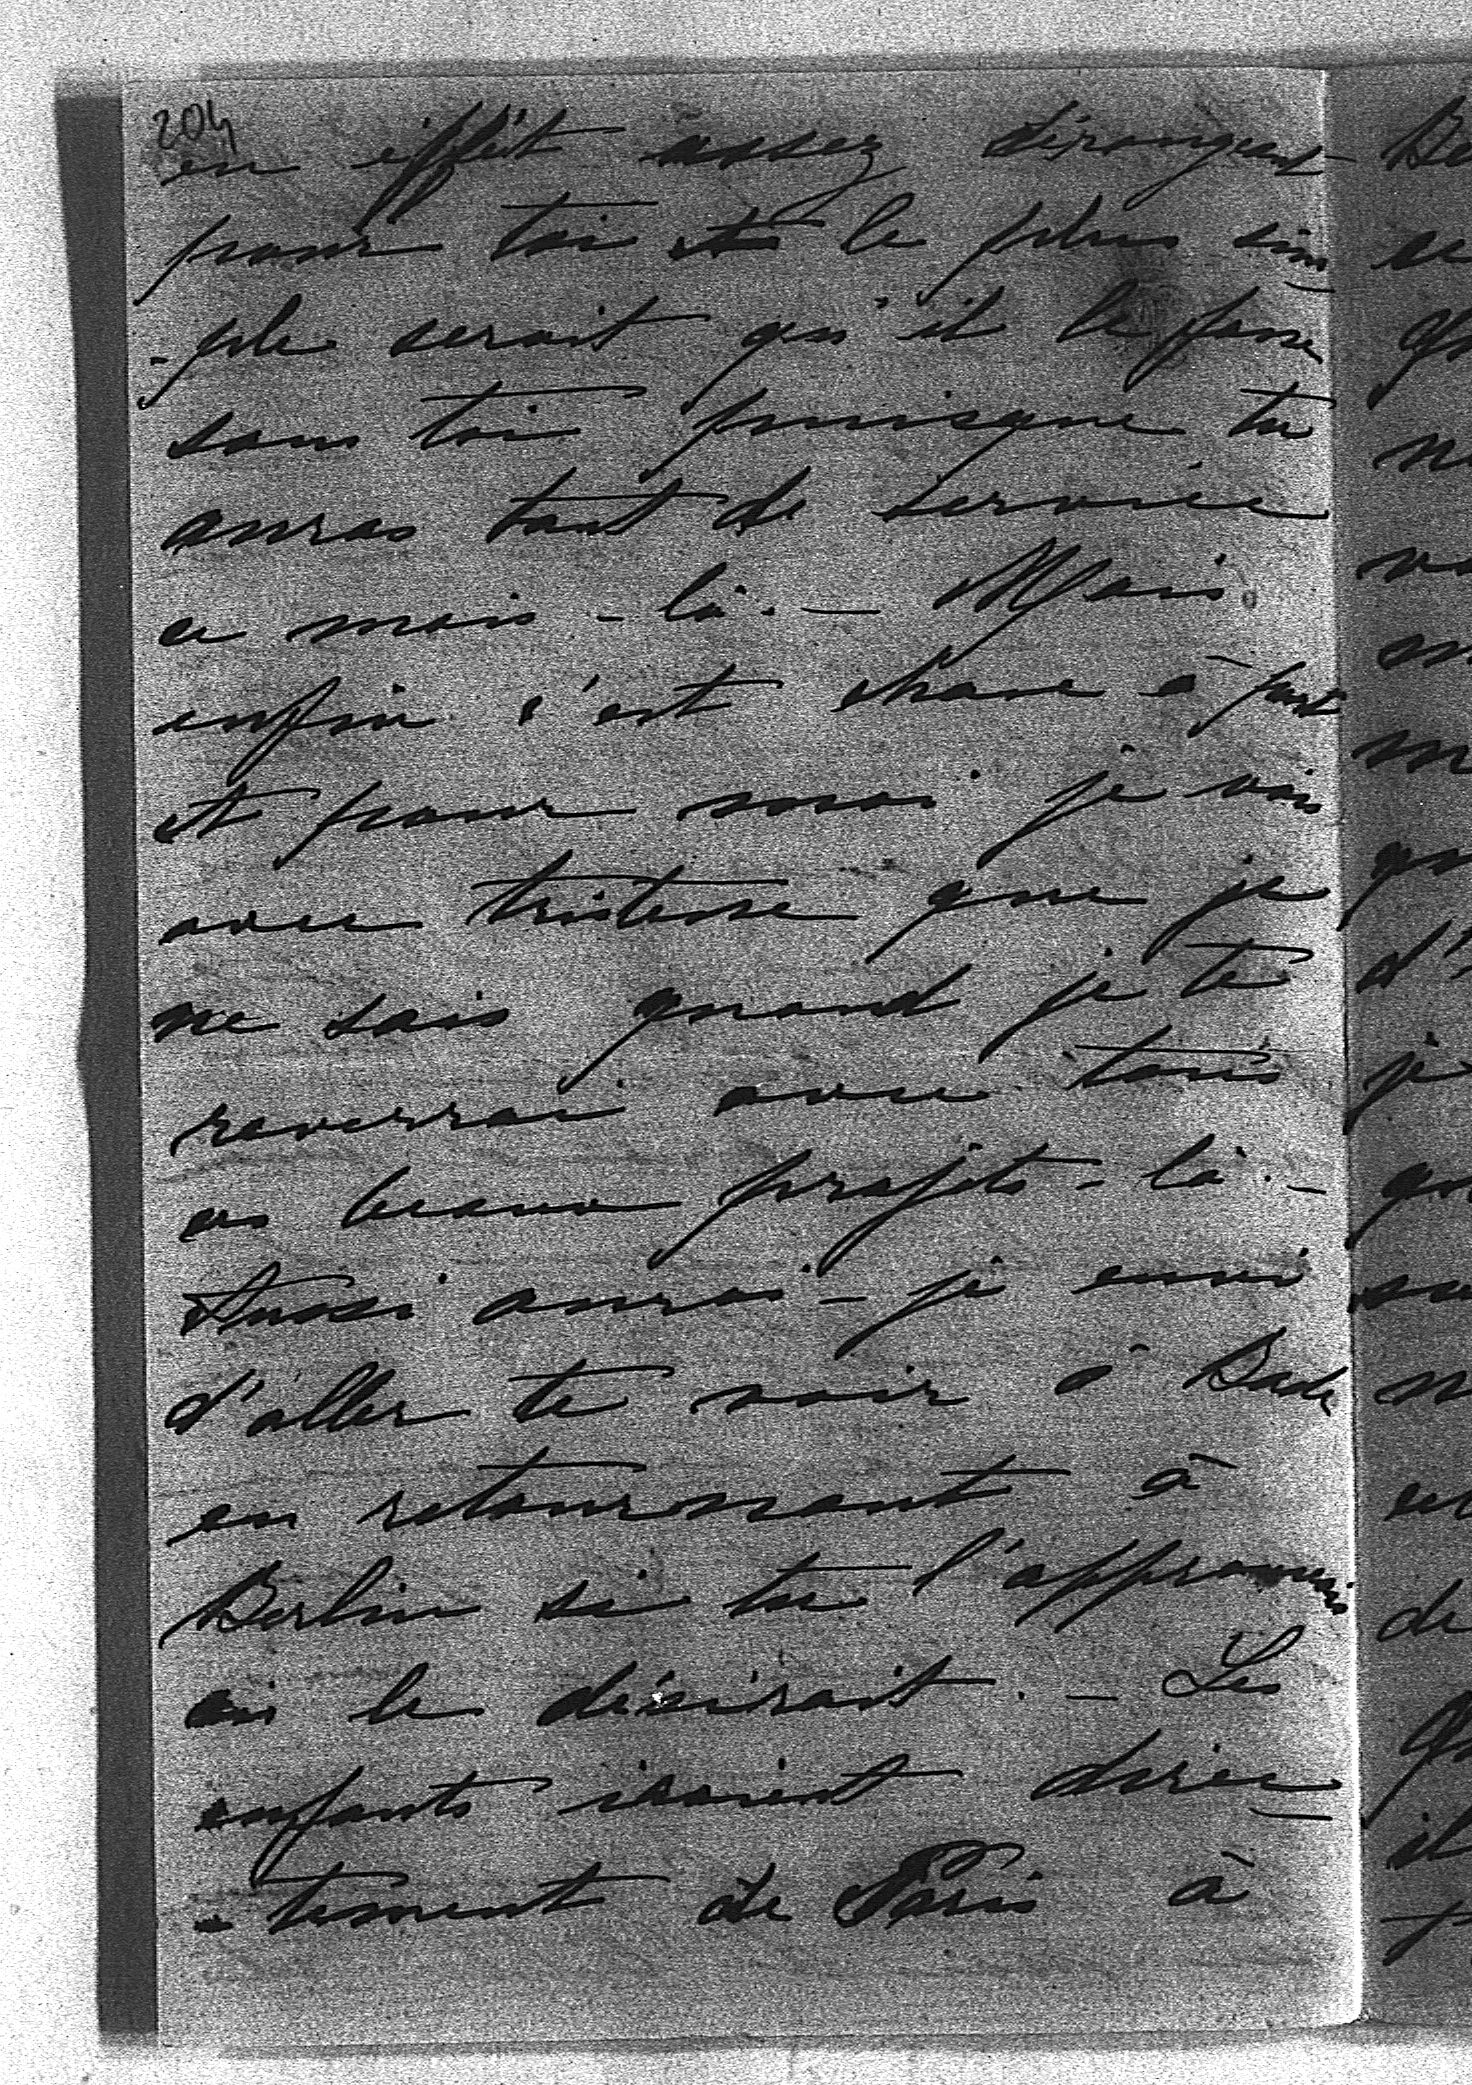 204
en effèt assez dérangeant
pour toi et le plus sim
-ple serait qu'il le fasse
sans toi puisque tu
auras tant de service
ce mois-là. — Mais
enfin c'est chose à part
et pour moi je vois
avec tristesse que je
ne sais quand je te
reverrai avec tous
ces beaux projets-là. —
Aussi aurai-je envi
d'aller te voir à Bade
en retournant à
Berlin si tu l'approuvais
ou le désirait. — Les
enfants iraient direc
-tement de Paris à